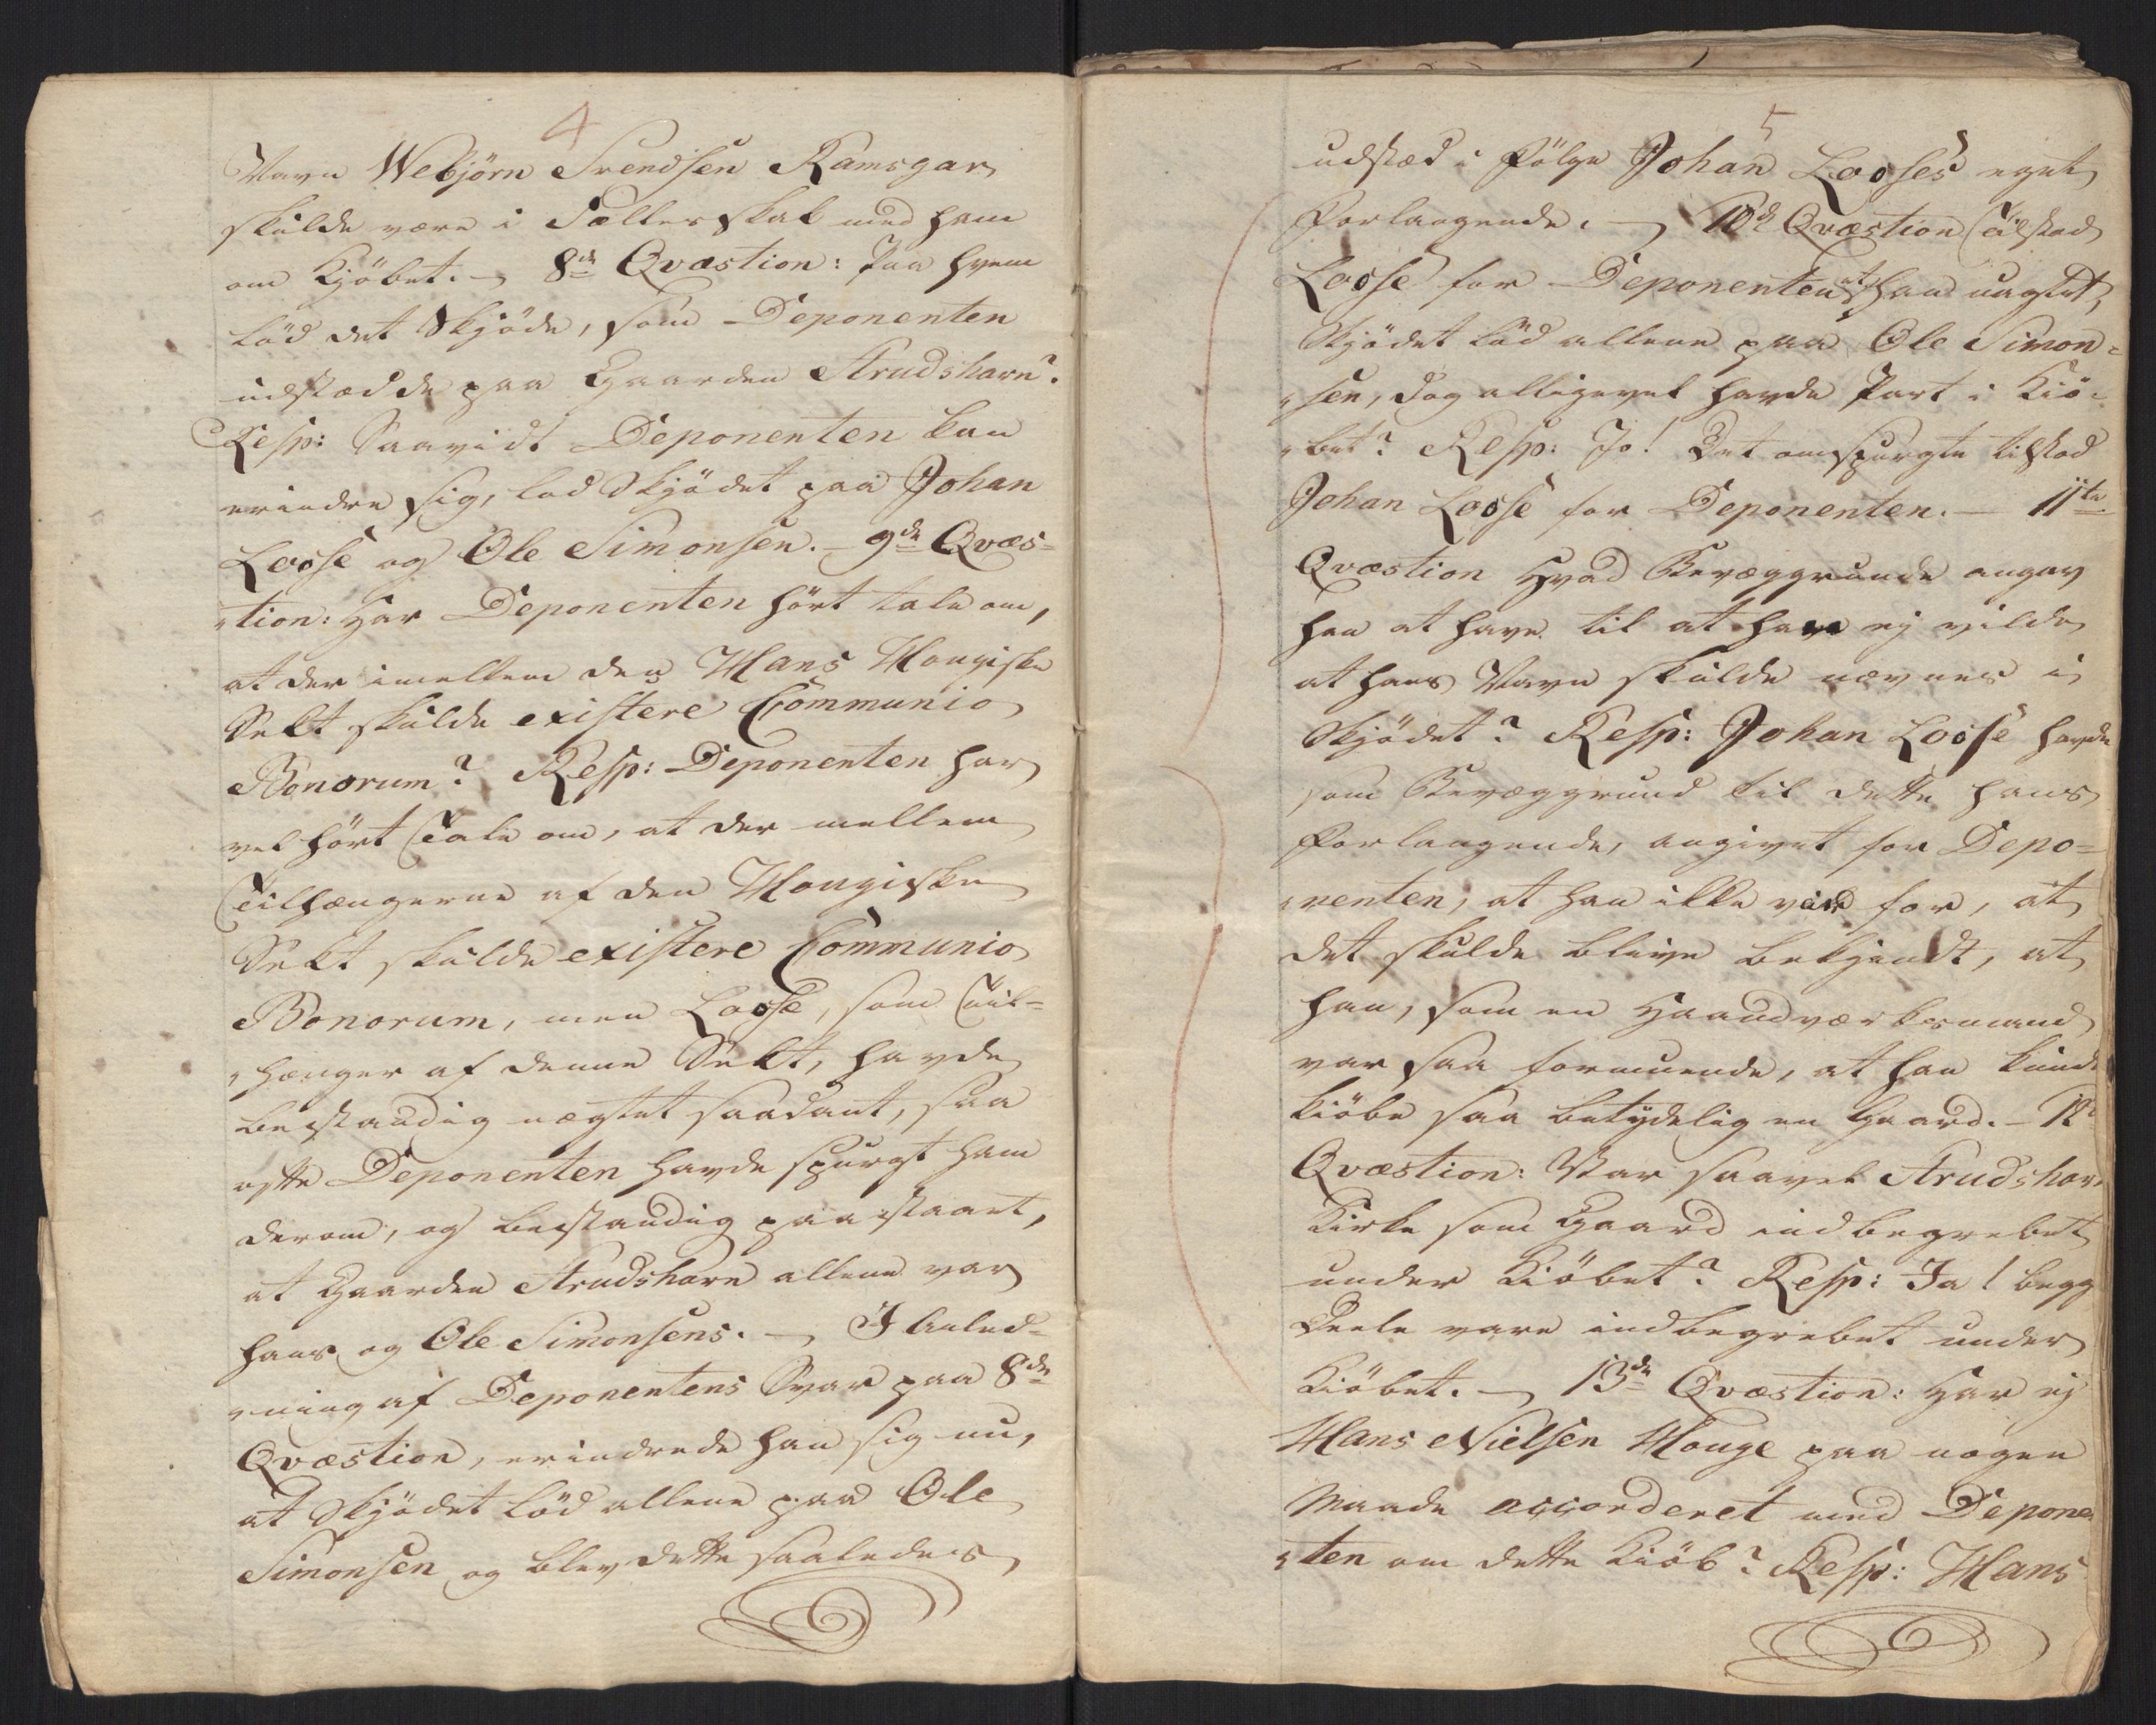 4
Navn Webjörn Svendsen Ramsgar
skulde være i Fællesskab med ham
om Kjöbet. — 8de Qvæstion: Paa hvem
löd det Skjöde, som Deponenten
udstædde paa Gaarden Strudshavn?
Resp: Saavidt Deponenten kan
erindre sig, löd Skjödet paa Johan
Loose og Ole Simonsen. — 9de Qvæs-
„tion: Har Deponenten hört tale om,
at der imellem den Hans Hougiske
Sekt skulde existere Communio
Bonorum? Resp: Deponenten har
vel hört Tale om, at der mellem
Tilhængerne af den Hougiske
Sekt skulde existere Communio
Bonorum, men Loose, som Til-
„hænger af denne Sekt, havde
bestandig nægtet saadant, saa
ofte Deponenten havde spurgt ham
derom, og bestandig paastaaet,
at Gaarden Strudshavn allene var
hans og Ole Simonsens. — I Anled-
„ning af Deponentens Svar paa 8de
Qvæstion, erindrede han sig nu,
at Skjödet löd allene paa Ole
Simonsen og blev dette saaledes
5
udstæd i Fölge Johan Looses eget
Forlangende. — 10de Qvæstion Tilstod
Loose for Deponenten at han uagtet,
Skjödet löd allene paa Ole Simon-
„sen, dog alligevel havde Part i Kiö-
„bet? Resp: Jo! Det omspurgte tilstod
Johan Loose for Deponenten. — 11te
Qvæstion Hvad Bevæggrunde angav
han at have til at han ej vilde
at hans Navn skulde nævnes i
Skjödet? Resp: Johan Loose havde
som Bevæggrund til dette hans
Forlangende, angivet for Depo-
„nenten, at han ikke var for, at
det skulde blive bekjendt, at
han, som en Haandværksmand
var saa formuende, at han kunde
kiöbe saa betydelig en Gaard. — 12
Qvæstion: Var saavel Strudshavn
Kirke som Gaard indbegrebet
under Kiöbet? Resp: Ja! begge
Deele vare indbegrebet under
Kiöbet. — 13de Qvæstion: Har ej
Hans Nielsen Houge paa nogen
Maade accorderet med Deponen
„ten om dette Kiöb? Resp: Hans